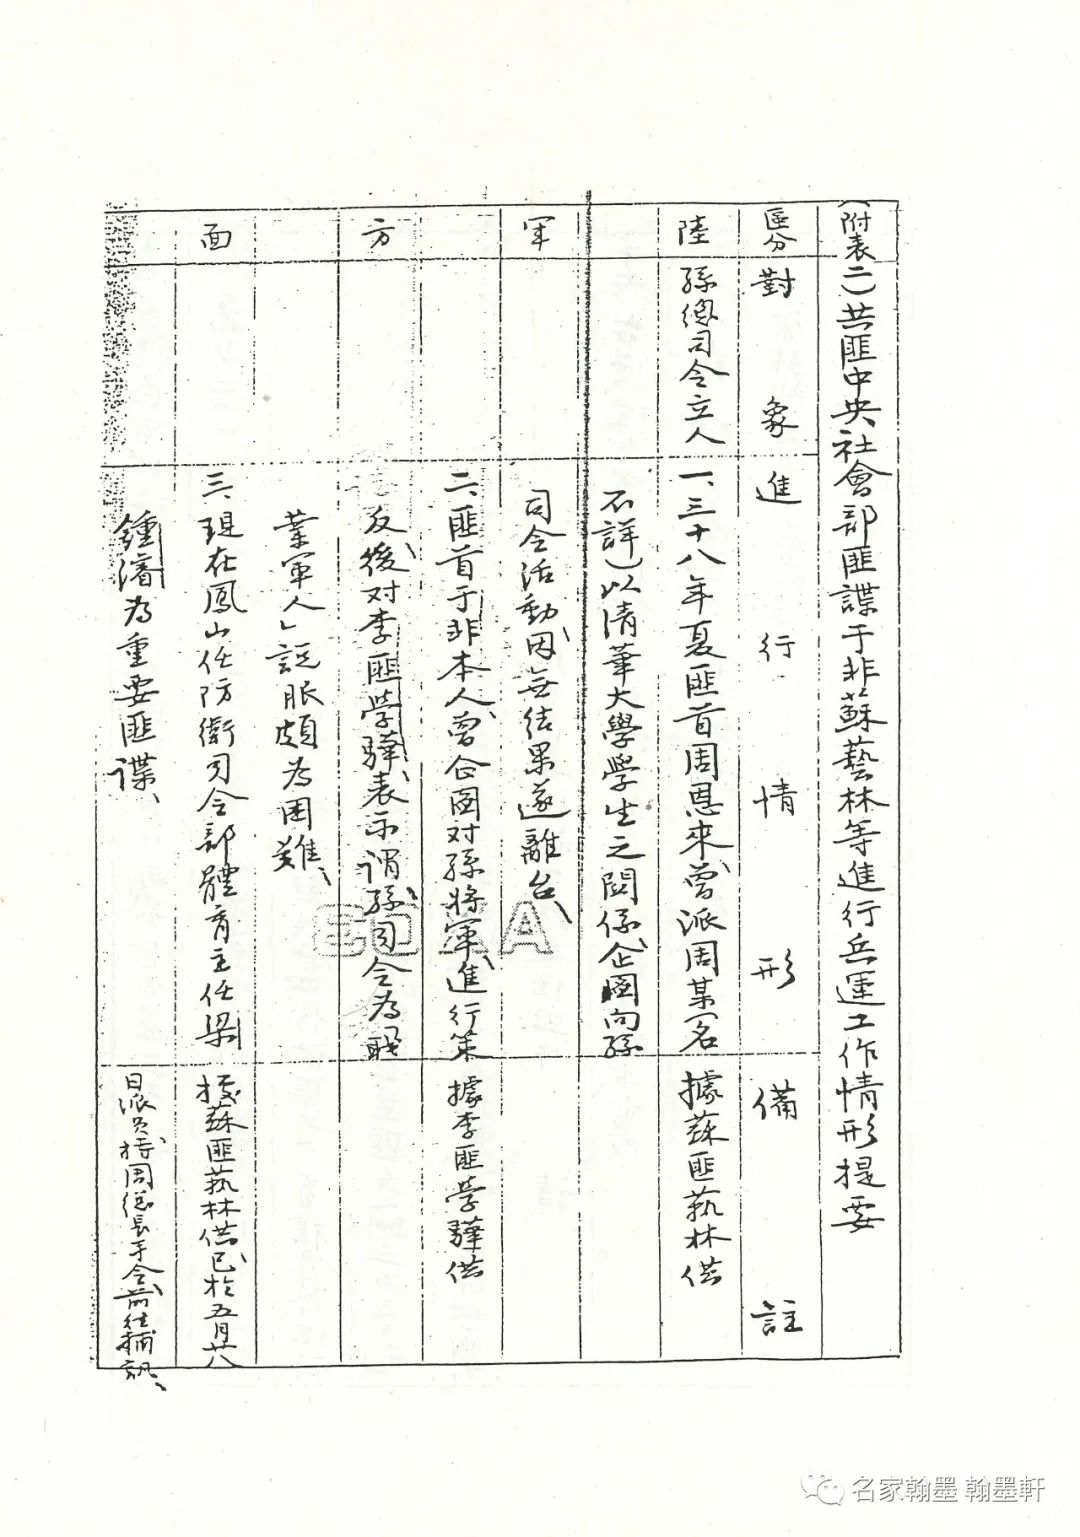 (附表二)共匪中央社會部匪諜于非蘇藝林等進行兵運工作情形提要
區分
對象
進行情形
備註
陸
孫總司令立人
一、三十八年夏匪首周恩來、曾派周某(名
據蘇匪藝林供
不詳)以清華大學學生之関係、企圖向孫
軍
司令活動、因無結果遂離台、
二、匪首于非本人、曾企圖对孫將軍進行策
據李匪學驊供
方
反後对李匪學驊、表示謂、孫司令為職
業軍人」説服頗為困難、
面
三、現在鳳山任防衛司令部體育主任梁
據蘇匪藝林供已、於五月廿八
鍾濬為重要匪諜、
日派員持周總長手令、前往捕訊、
名家翰墨 翰墨軒